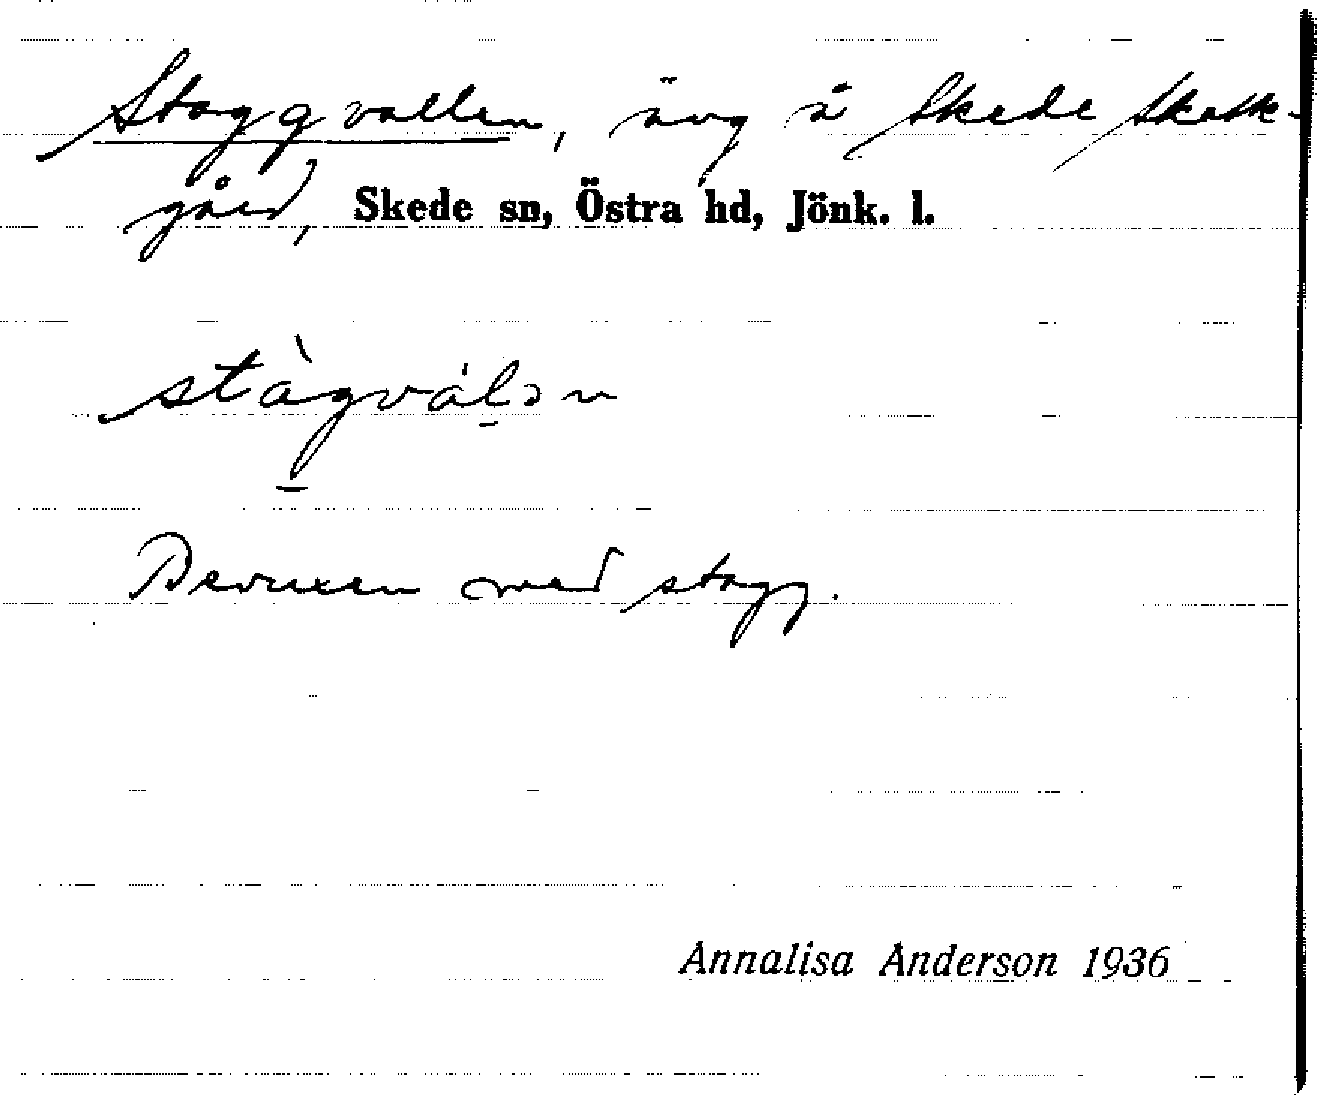 Staggvallen, äng å Skede Skatte-
gård, Skede sn, Östra hd, Jönk. l.
stàgválən
Bevuxen med stagg.
Annalisa Anderson 1936